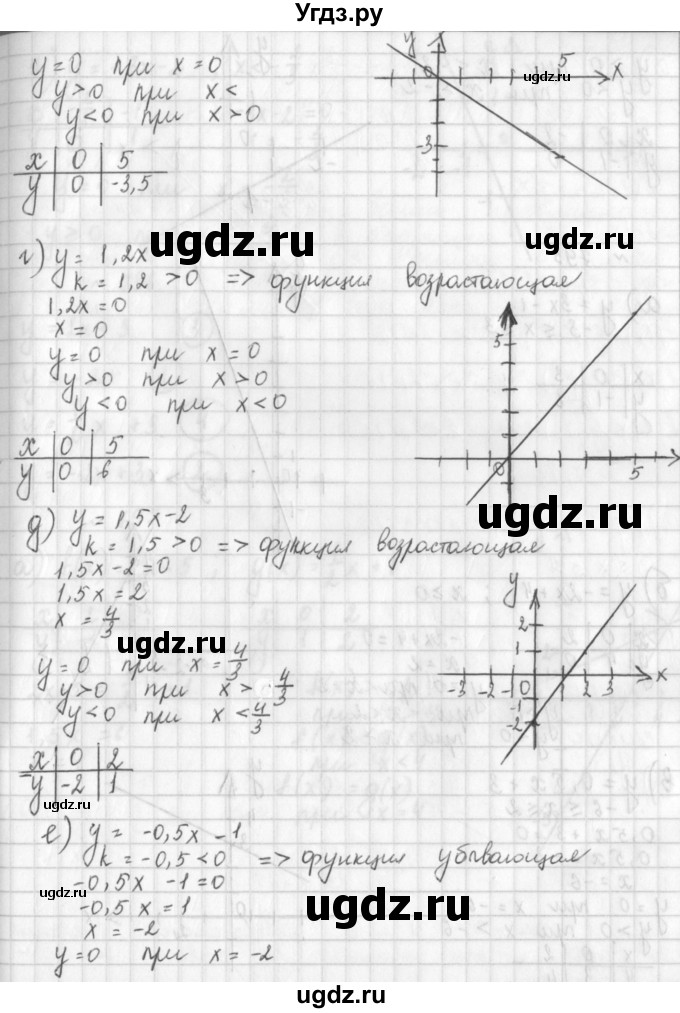 Угдз.ру
y=0 при x=0
y>0 при x<
y<0 при x>0
x 0 5
y 0 -3,5
y x
0 5
-3
ugdz.ru
ugdz.ru
ugdz.ru
г) y= 1,2x
k=1,2 >0 => функция возрастающая
1,2x=0
x=0
y=0 при x=0
y>0 при x>0
y<0 при x<0
x 0 5
y 0 6
5
0 5
ugdz.ru
д) y=1,5x-2
k=1,5>0 => функция возрастающая
1,5x-2=0
1,5x=2
x= 4/3
ugdz.ru
y=0 при x=4/3
y>0 при x>4/3
y<0 при x<4/3
x 0 2
y -2 1
y
2
1
-3 -2 -1 0 1 2 3 x
-1
-2
ugdz.ru
е) y= -0,5x -1
k=-0,5<0 => функция убывающая
-0,5x -1=0
-0,5x=1
x=-2
y=0 при x=-2
ugdz.ru
ugdz.ru
ugdz.ru
ugdz.ru